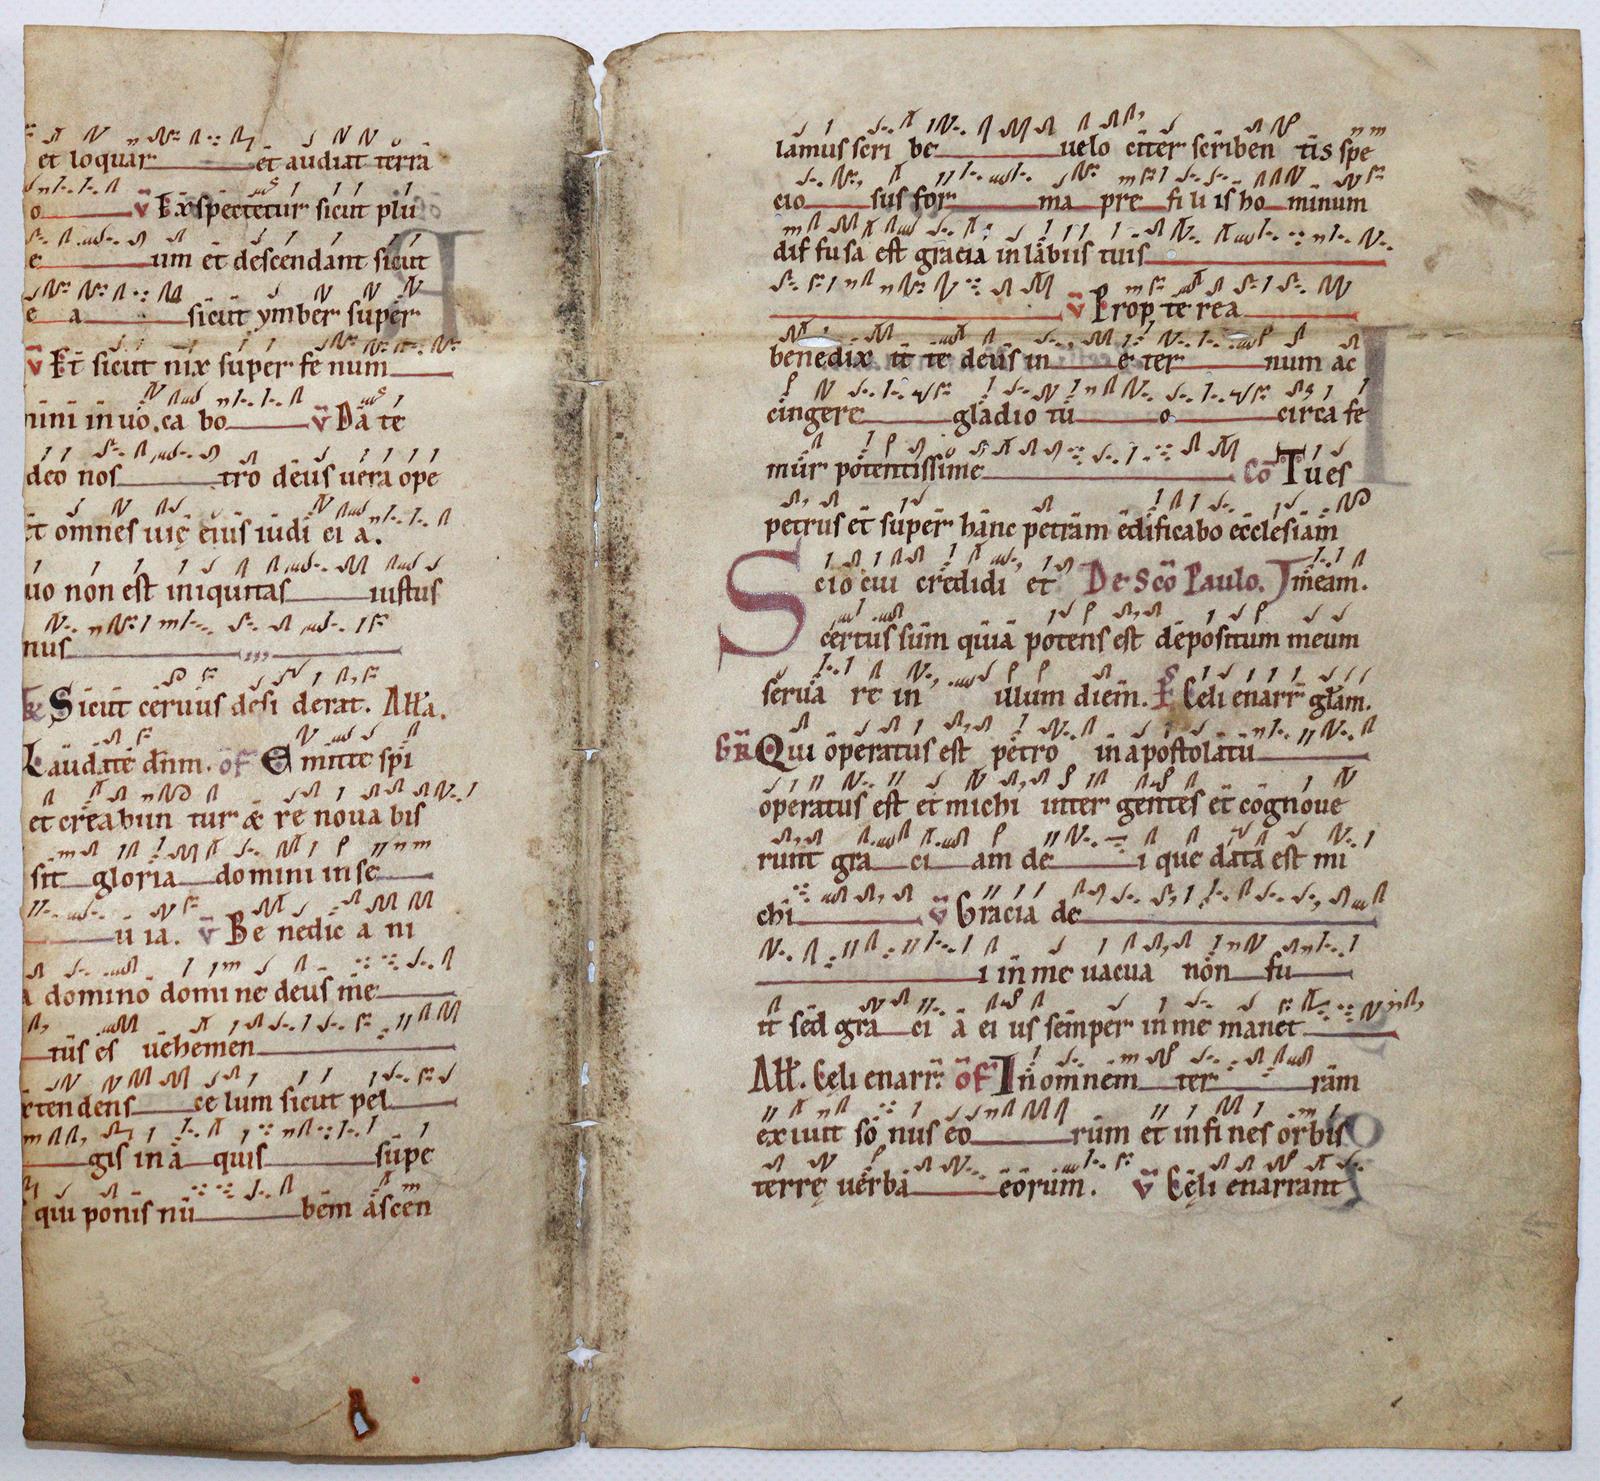 et loquar et audiat terra
o v Exspectetur sicut plu
e um et descendant sicut
e a sicut ymber super
v Et sicut nix super fe num
nini in uo ca bo v Da te
deo nos tro deus uera ope
et omnes uię eius iudi ci a.
uo non est iniquitas iustus
nus
Sicut ceruus desi derat. All'a.
Laudate dn̄m. of Emitte sp̄i
et crea bun tur & re noua bis
sit gloria domini in se
u ia. v Be nedic a ni
a domino domi ne deus me
tus es uehemen
xtendens ce lum sicut pel
gis in a quis supe
qui ponis nu bem ascen
lamus scri be uelo citer scriben tis spe
cio sus for ma pre fi li is ho minum
dif fu sa est gracia in labiis tuis
v Prop te rea
benedix it te deus in e ter num ac
cingere gladio tu o circa fe
mur potentissime Co Tu es
petrus et super hanc petram edificabo ecclesiam
Scio cui credidi et De Sc̄o Paulo. meam.
certus sum quia potens est depositum meum
serua re in illum diem. Ps Celi enarr gl̄am.
GR Qui operatus est petro in apostolatu
operatus est et michi inter gentes et cognoue
runt gra ci am de i que data est mi
chi v Gracia de
i in me uacua non fu
it sed gra ci a ei us semper in me manet
All. Cęli enarr. of In omnem ter ram
exiuit so nus eo rum et in fi nes orbis
terrę uerba eorum. v Cęli enarrant